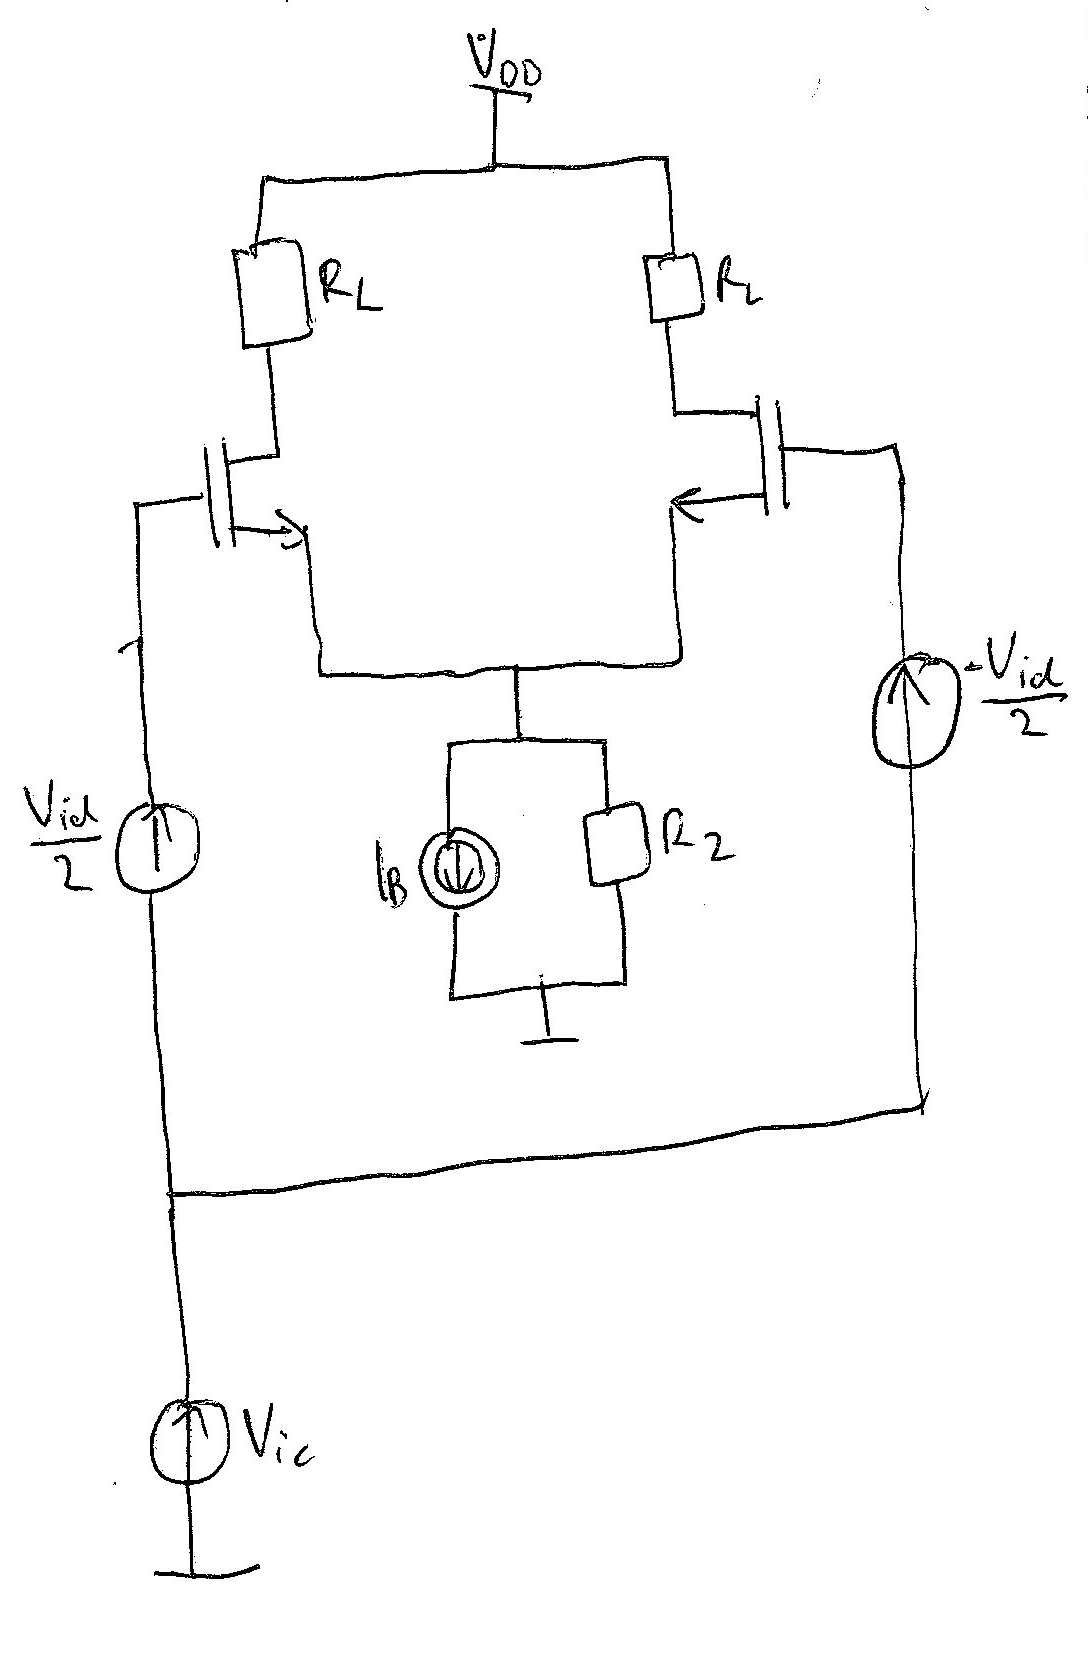 VDD
RL
RL
-Vid
2
Vid
2
IB
R2
Vic